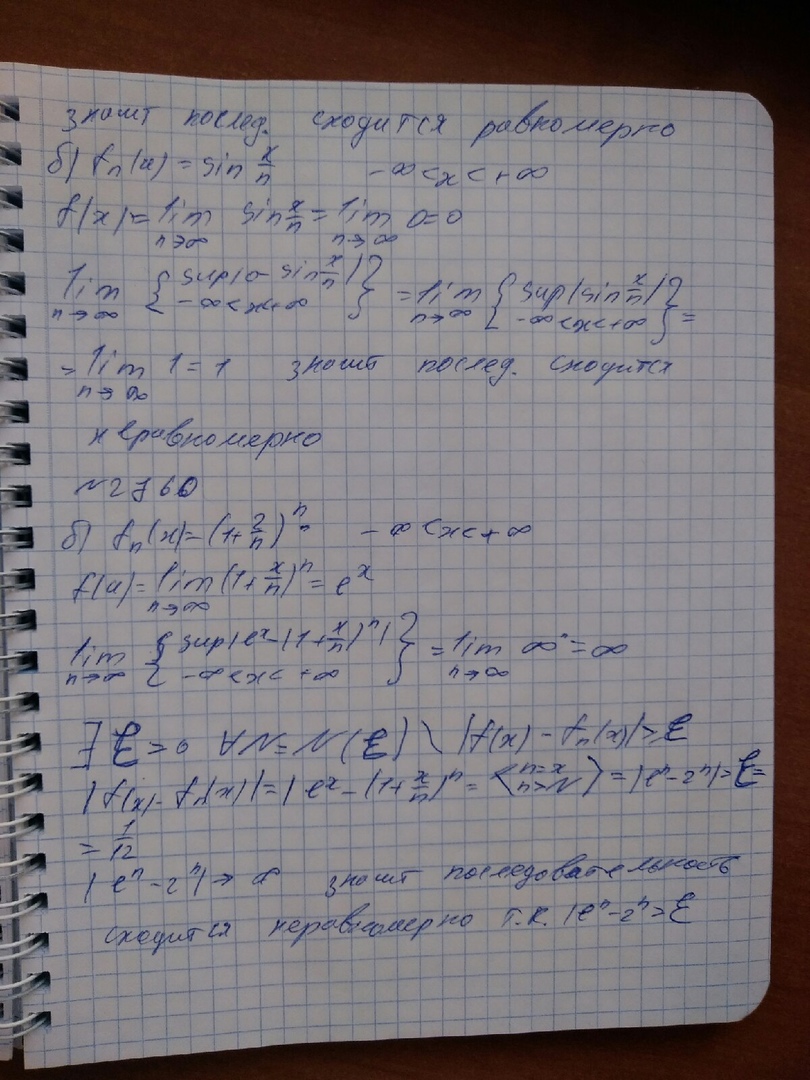 значит послед. сходится равномерно
б) fₙ(x) = sin x/n    -∞ < x < +∞
f(x) = lim n→∞ sin x/n = lim n→∞ 0 = 0
lim n→∞ { sup |0 - sin x/n| -∞ < x < +∞ } = lim n→∞ { sup |sin x/n| -∞ < x < +∞ } =
= lim n→∞ 1 = 1    значит послед. сходится
неравномерно
№2760
б) fₙ(x) = (1 + 2/n)ⁿ    -∞ < x < +∞
f(x) = lim n→∞ (1 + x/n)ⁿ = eˣ
lim n→∞ { sup |eˣ - (1 + x/n)ⁿ| -∞ < x < +∞ } = lim n→∞ ∞ = ∞
∃ Ɛ > 0 ∀N = N(Ɛ) \ |f(x) - fₙ(x)| > Ɛ
|f(x) - fₙ(x)| = |eˣ - (1 + x/n)ⁿ = ⟨ n = x n > N ⟩ = |eⁿ - 2ⁿ| > Ɛ =
= 1/12
|eⁿ - 2ⁿ| → ∞    значит последовательность
сходится неравномерно т.к. |eⁿ - 2ⁿ > Ɛ